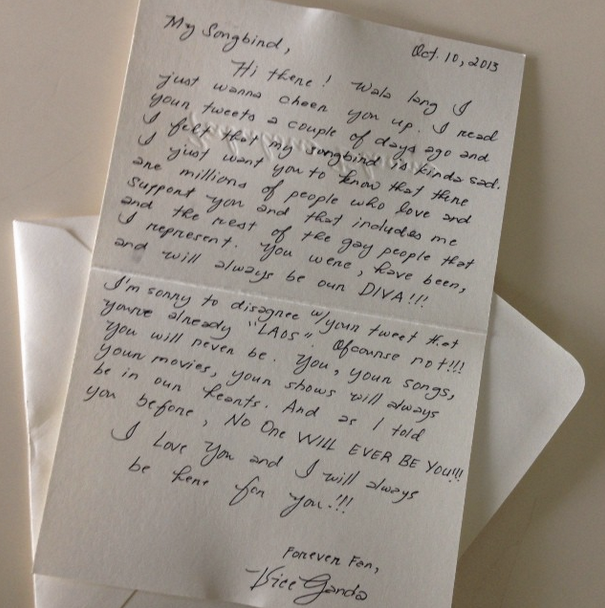 My Songbird,
Oct. 10, 2013
Hi there! Wala lang I
just wanna cheer you up. I read
your tweets a couple of days ago and
I felt that my songbird is kinda sad.
I just want you to know that there
are millions of people who love and
support you and that includes me
and the rest of the gay people that
I represent. You were, have been,
and will always be our DIVA!!!
I'm sorry to disagree w/your tweet that
you're already "LAOS". Ofcourse not!!!
You will never be. You, your songs,
your movies, your shows will always
be in our hearts. And as I told
you before, NO ONE WILL EVER BE YOU!!!
I Love You and I will always
be here for you.!!!
Forever Fan,
Vice Ganda